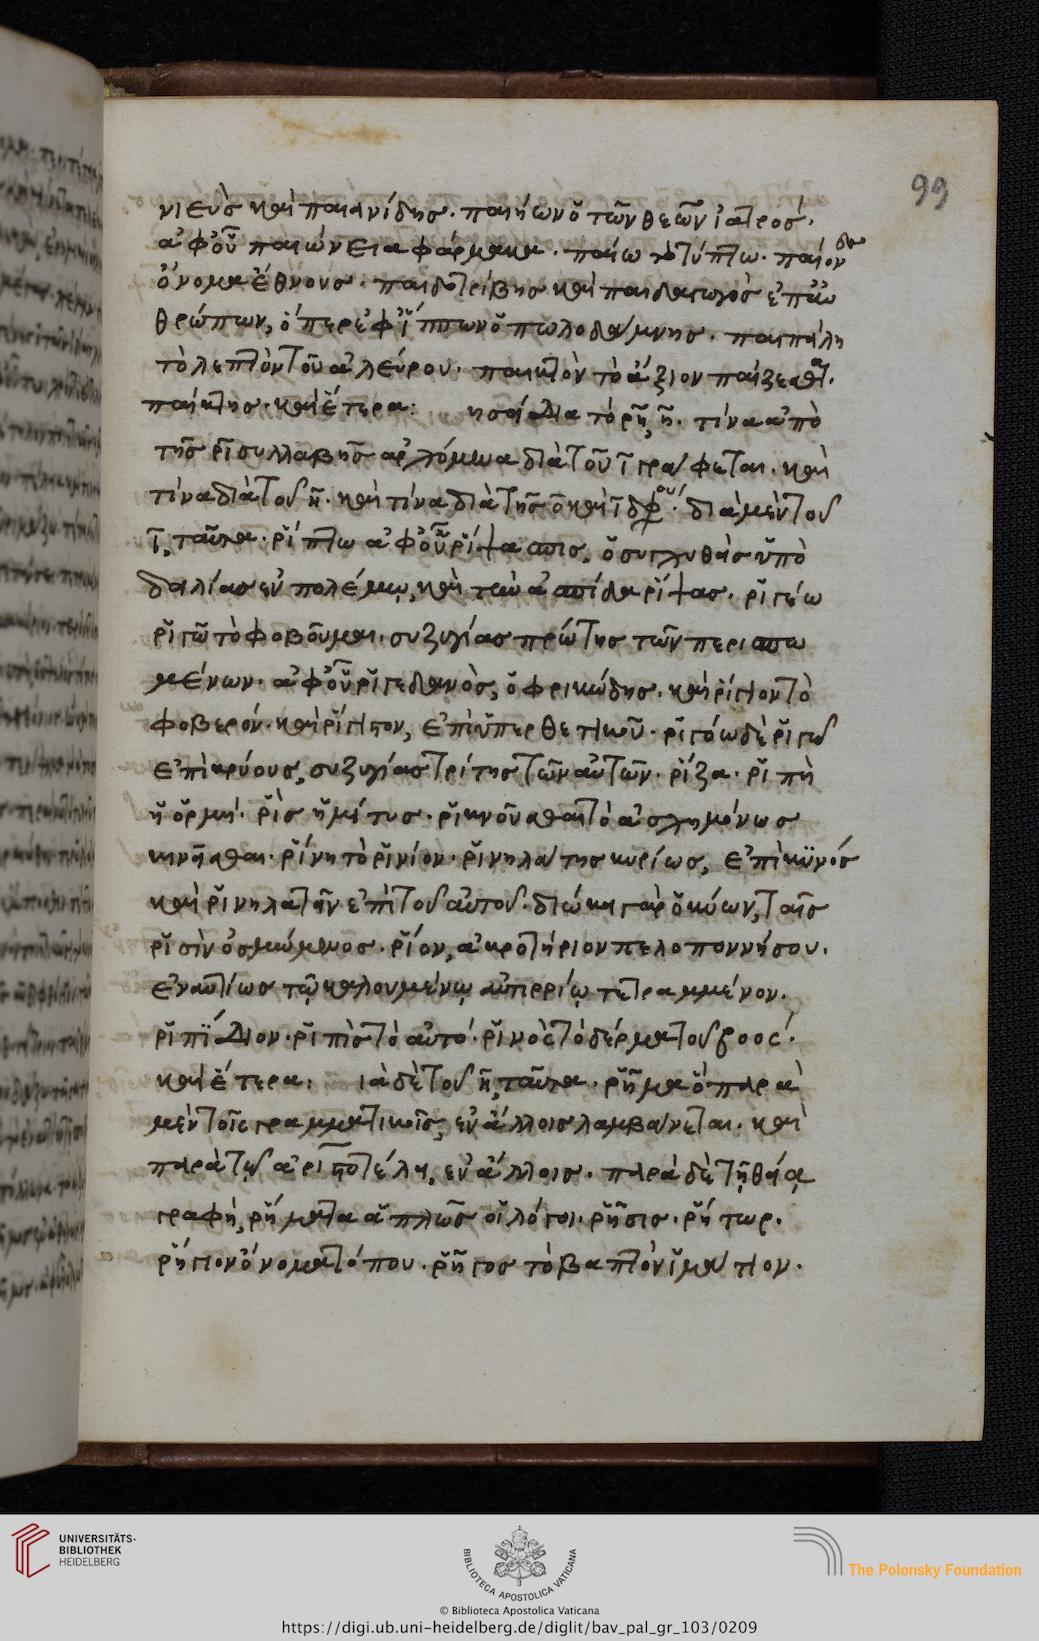 99
νιεὺς καὶ παιανίδης· παιήων ὁ τῶν θεῶν ἰατρός·
ἀφ' οὗ παιώνεια φάρμακα· παίω τὸ τύπτω· παίον δὲ
ὄνομα ἔθνους· παιδοτρίβης καὶ παιδαγωγὸς ἐπ' ἀν
θρώπων, ὅπερ ἐφ' ἵππων ὁ πωλοδάμνης· παιπάλη
τὸ λεπτὸν τοῦ ἀλεύρου· παικτὸν τὸ ἄξιον παίζεσθαι·
παίκτης· καὶ ἕτερα:
τίνα ἀπὸ
τῆς ρι συλλαβῆς ἀρχόμενα διὰ τοῦ ι γράφεται· καὶ
τίνα διὰ τοῦ η· καὶ τίνα διὰ τῆς ει διφθόγγου· διὰ μὲν τοῦ
ι, ταῦτα· ῥίπτω ἀφ' οὗ ῥίψασπις, ὁ συσχεθεὶς ὑπὸ
δειλίας ἐν πολέμῳ, καὶ τὴν ἀσπίδα ῥίψας· ῥιγέω
ῥιγῶ τὸ φοβοῦμαι· συζυγίας πρώτης τῶν περισπω
μένων· ἀφ' οὗ ῥιγεδανὸς, ὁ φρικώδης· καὶ ῥίγιον τὸ
φοβερόν· καὶ ῥίγιστον, ἐπὶ ὑπερθετικοῦ· ῥιγόω δὲ ῥιγῶ
ἐπὶ κρύους, συζυγίας τρίτης τῶν αὐτῶν· ῥίζα· ῥιπὴ
ἡ ὁρμή· ῥὶς ἡ μύτις· ῥικνοῦσθαι τὸ ἀσχημόνως
κινεῖσθαι· ῥίνη τὸ ῥινίον· ῥινηλάτης κυρίως, ἐπὶ κυνός
καὶ ῥινηλατεῖν ἐπὶ τοῦ αὐτοῦ· διώκει γὰρ ὁ κύων, ταῖς
ῥισὶν ὀσμώμενος· ῥίον, ἀκροτήριον πελοποννήσου·
ἐναντίως τῷ καλουμένῳ ἀντιρρίῳ τετραμμένον·
ῥιπίδιον· ῥιπὶς τὸ αὐτό· ῥινὸς τὸ δέρμα τοῦ βοός·
καὶ ἕτερα: διὰ δὲ τοῦ η, ταῦτα· ῥῆμα ὃ παρὰ
μὲν τοῖς γραμματικοῖς, ἐν ἄλλοις λαμβάνεται· καὶ
παρὰ τῷ ἀριστοτέλει, ἐν ἄλλοις· παρὰ δὲ τῇ θείᾳ
γραφῇ, ῥήματα ἁπλῶς οἱ λόγοι· ῥῆσις· ῥήτωρ·
ῥήγιον ὄνομα τόπου· ῥῆγος τὸ βαπτὸν ἱμάτιον·
UNIVERSITÄTS-
BIBLIOTHEK
HEIDELBERG
BIBLIOTECA APOSTOLICA VATICANA
The Polonsky Foundation
© Biblioteca Apostolica Vaticana
https://digi.ub.uni-heidelberg.de/diglit/bav_pal_gr_103/0209